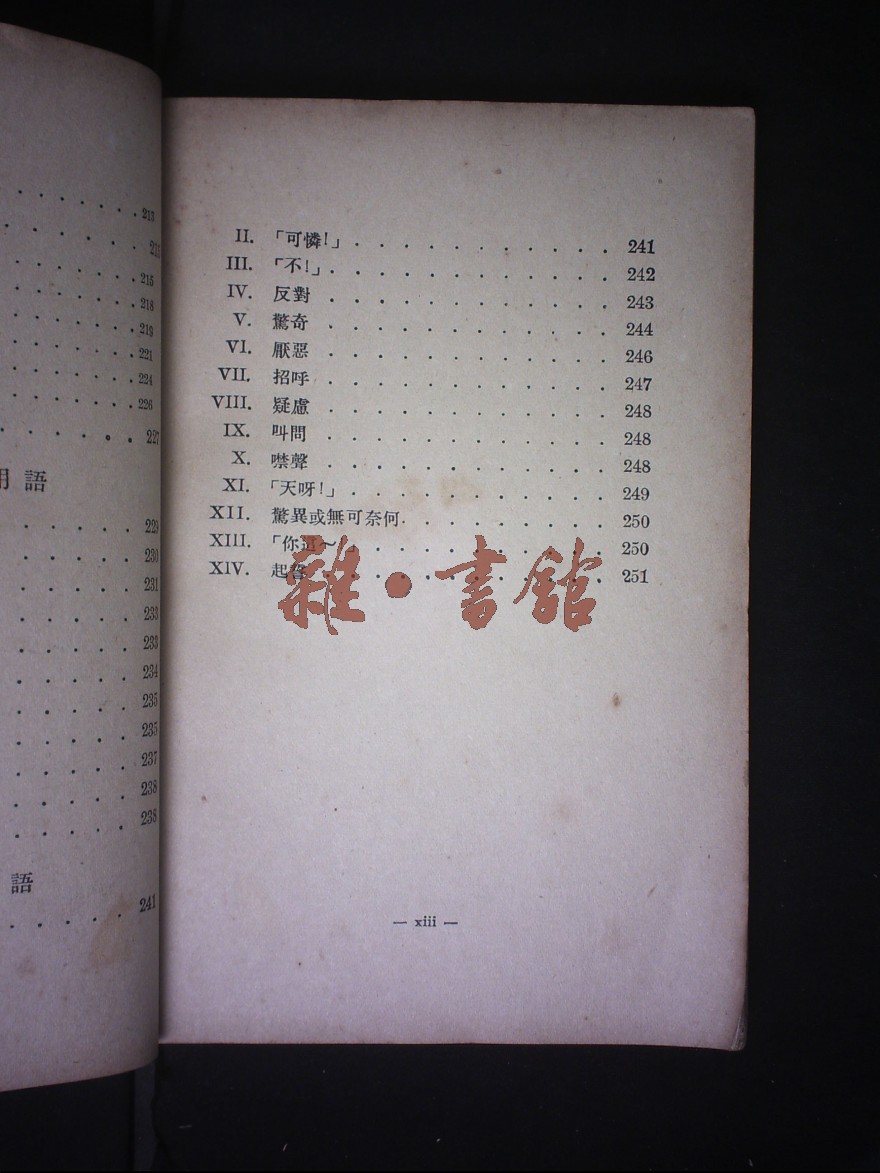 213
215
215
218
219
221
224
226
227
用語
229
230
231
233
233
234
235
235
237
238
238
語
241
II. 「可憐!」 . . . . . . . . . . . 241
III. 「不!」 . . . . . . . . . . . . 242
IV. 反對 . . . . . . . . . . . . 243
V. 驚奇 . . . . . . . . . . . . 244
VI. 厭惡 . . . . . . . . . . . . 246
VII. 招呼 . . . . . . . . . . . . 247
VIII. 疑慮 . . . . . . . . . . . . 248
IX. 叫問 . . . . . . . . . . . . 248
X. 噤聲 . . . . . . . . . . . . 248
XI. 「天呀!」 . . . . . . . . . . . 249
XII. 驚異或無可奈何 . . . . . . . . . 250
XIII. 「你這~」 . . . . . . . . . . 250
XIV. 起誓 . . . . . . . . . . . . 251
雜·書館
— xiii —